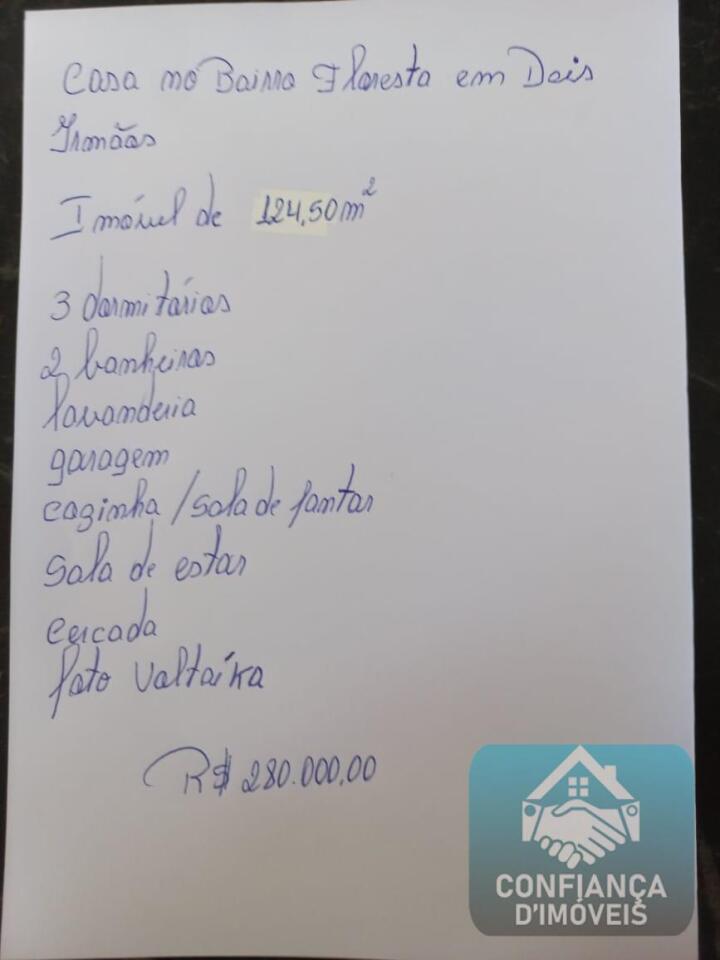 Casa no Bairro Floresta em Dois
Irmãos
Imóvel de 124,50m²
3 dormitórios
2 banheiros
lavanderia
garagem
cozinha/sala de jantar
sala de estar
cercada
foto Voltaíka
R$ 280.000,00
CONFIANÇA
D'IMÓVEIS